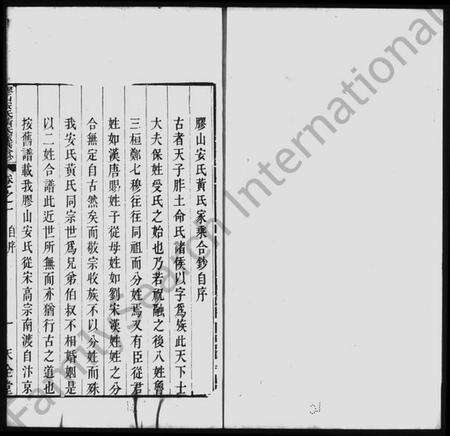 膠山安氏黃氏家乘合鈔自序
古者天子胙土命氏諸侯以字爲族此天下士
大夫保姓受氏之始也乃若祝融之後八姓魯
三桓鄭七穆往往同祖而分姓焉又有臣從君
姓如漢唐賜姓子從母姓如劉宋漢姓姓之分
合無定自古然矣而敬宗收族不以分姓而殊
我安氏黃氏同宗世爲兄弟伯叔不相婚姻是
以二姓合譜此近世所無而亦猶行古之道也
按舊譜載我膠山安氏從宋高宗南渡自汴京
卷之一 自序 一 天全堂
FamilySearch International